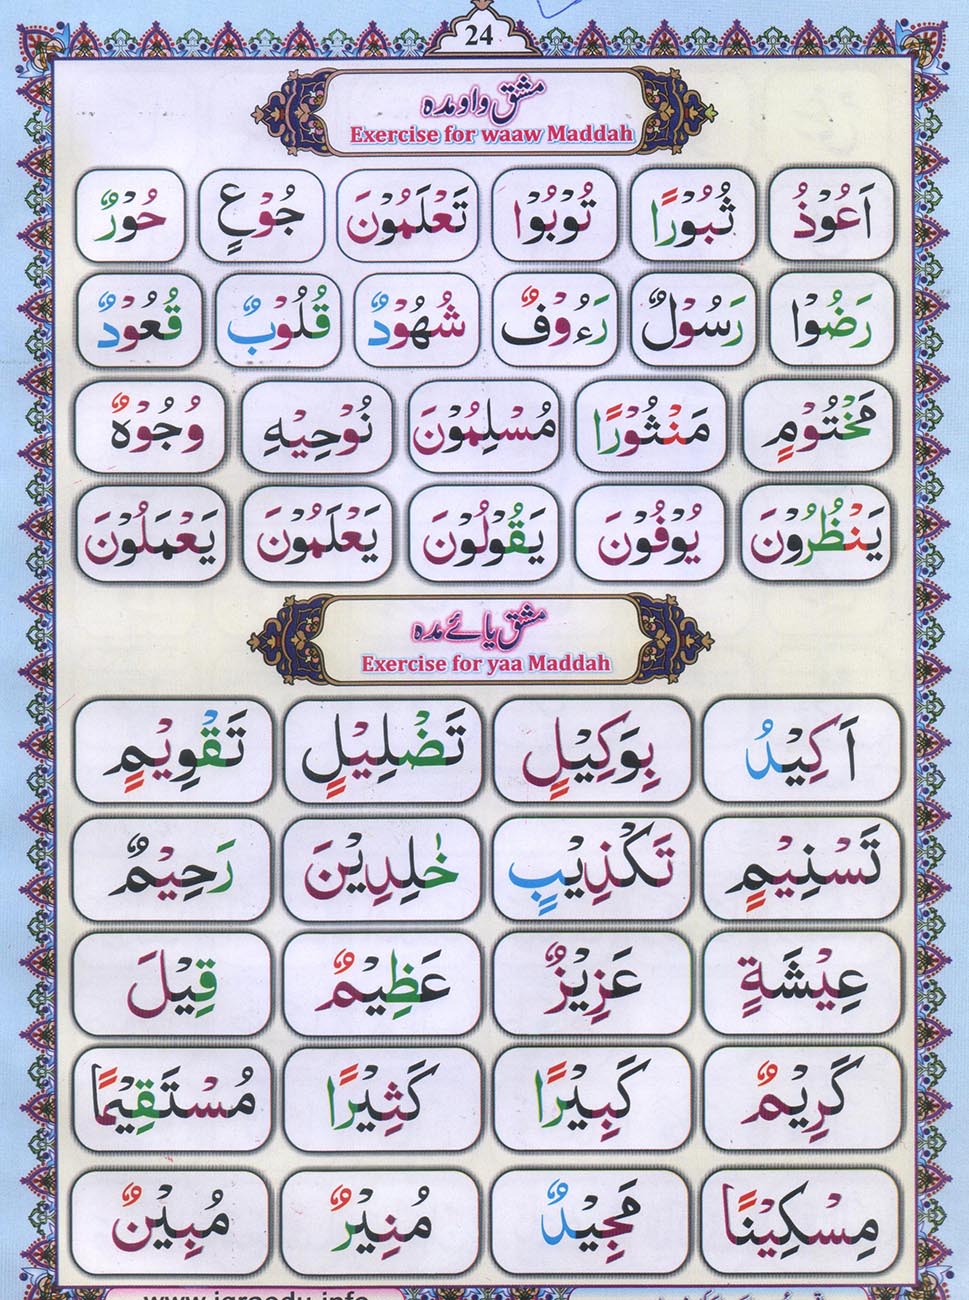 24
مشق واو مدہ
Exercise for waaw Maddah
اَعُوْذُ ثُبُوْرًا تُوْبُوْا تَعْلَمُوْنَ جُوْعٍ حُوْرٌ
رَضُوْا رَسُوْلٌ رَءُوْفٌ شُهُوْدٌ قُلُوْبٌ قُعُوْدٌ
مَخْتُوْمٍ مَنْثُوْرًا مُسْلِمُوْنَ نُوْحِيْهِ وُجُوْهٌ
يَنْظُرُوْنَ يُوْفُوْنَ يَقُوْلُوْنَ يَعْلَمُوْنَ يَعْمَلُوْنَ
مشق یائے مدہ
Exercise for yaa Maddah
اَكِيْدُ بِوَكِيْلٍ تَضْلِيْلٍ تَقْوِيْمٍ
تَسْنِيْمٍ تَكْذِيْبٍ خٰلِدِيْنَ رَحِيْمٌ
عِيْشَةٍ عَزِيْزٌ عَظِيْمٌ قِيْلَ
كَرِيْمٌ كَبِيْرًا كَثِيْرًا مُسْتَقِيْمًا
مِسْكِيْنًا مَجِيْدٌ مُنِيْرٌ مُبِيْنٌ
www.iqraedu.info